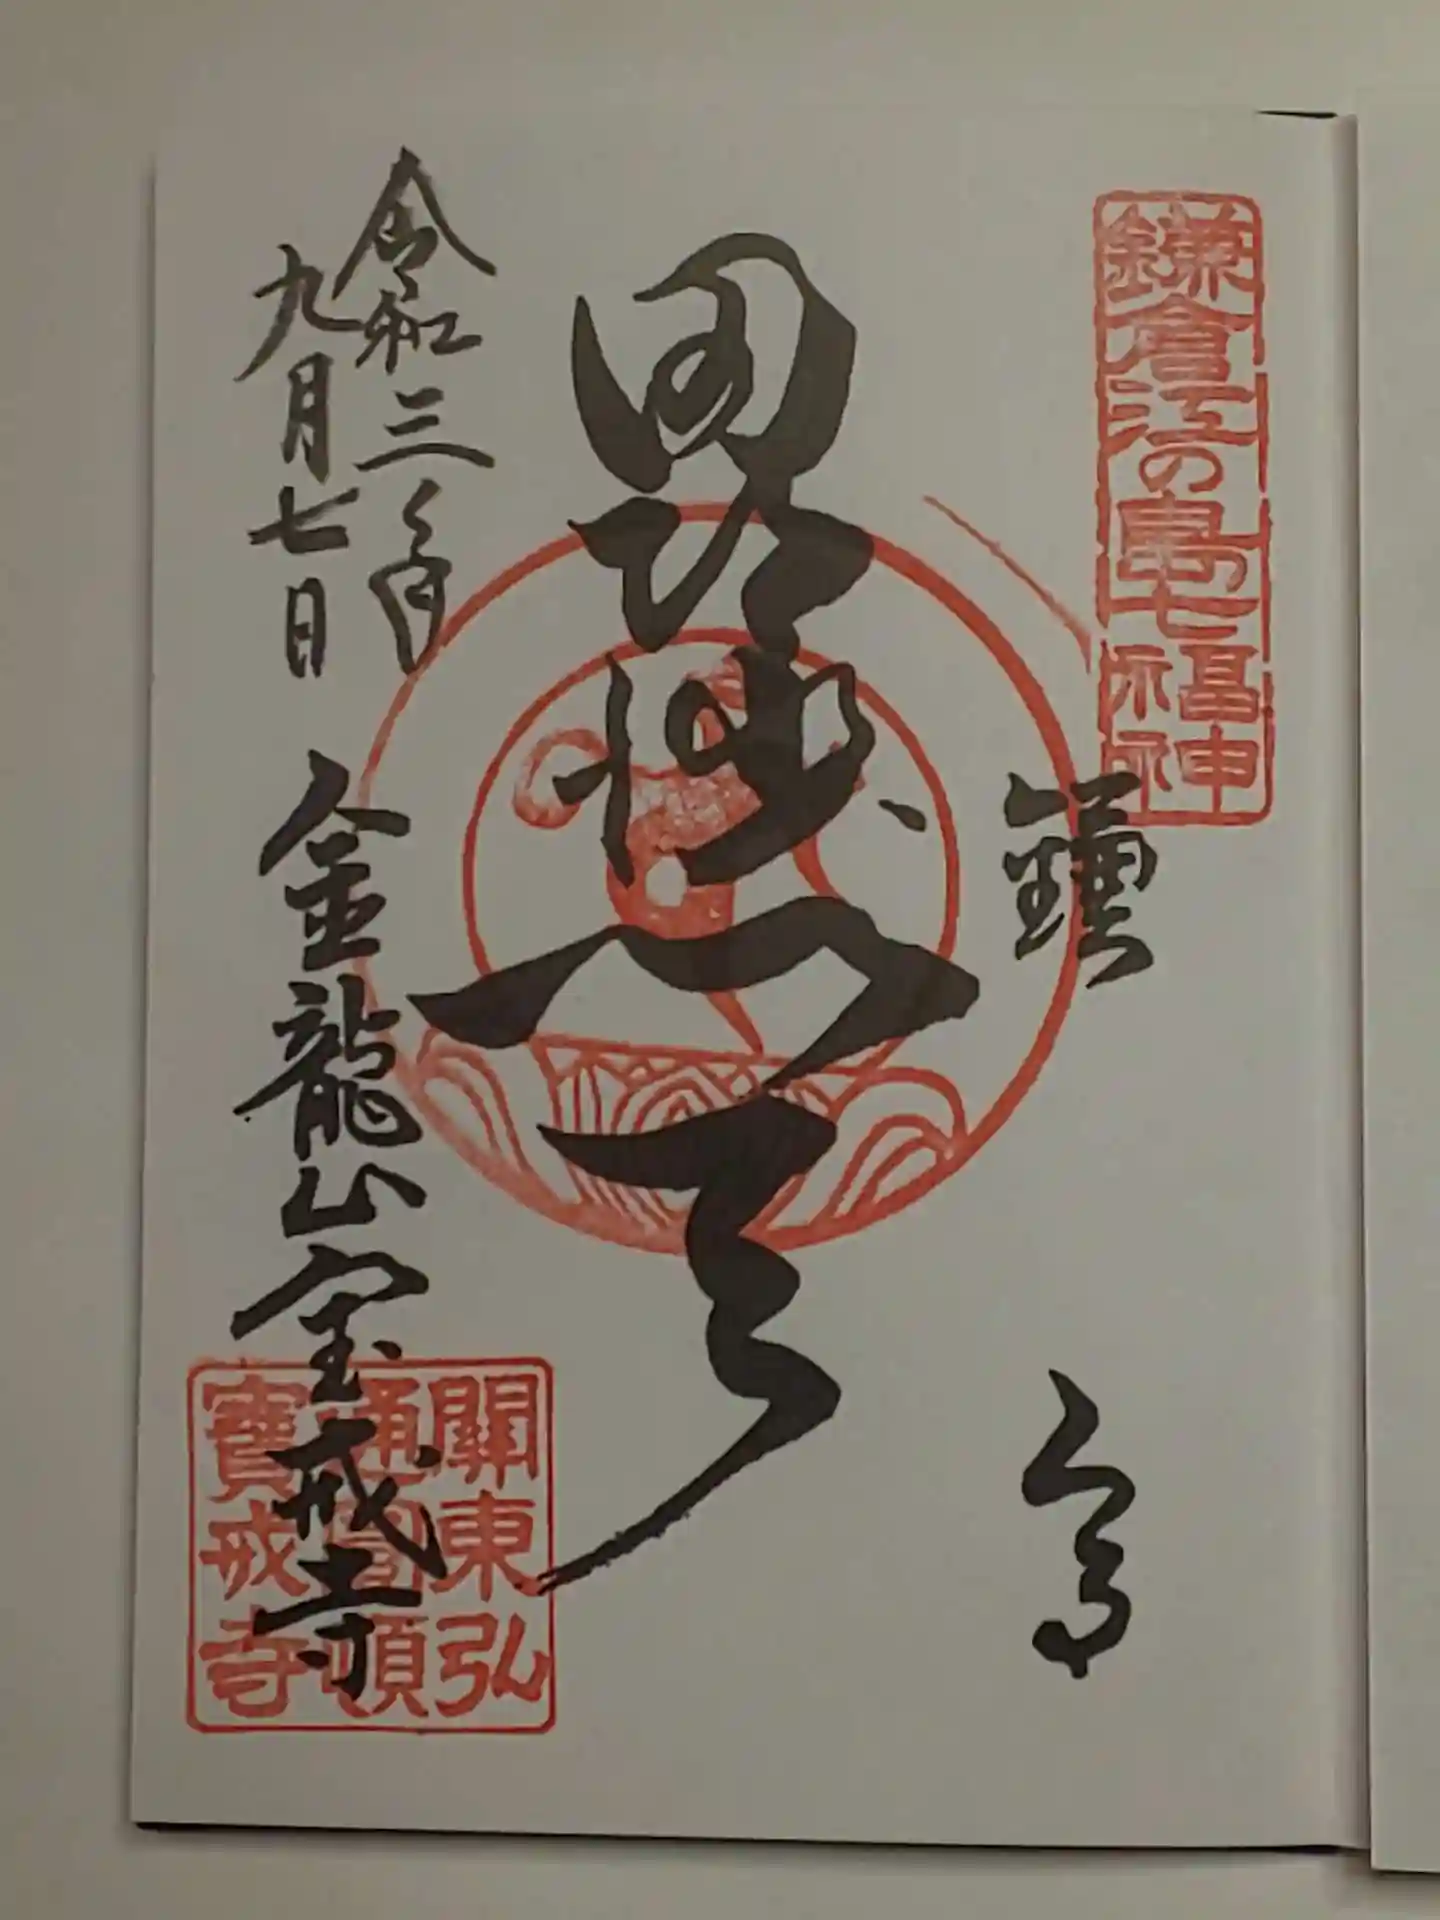 鎌倉江の島七福神
鎌
倉
毘沙門天
令和三年
九月七日
金龍山宝戒寺
關東弘
通圓頓
寶戒寺